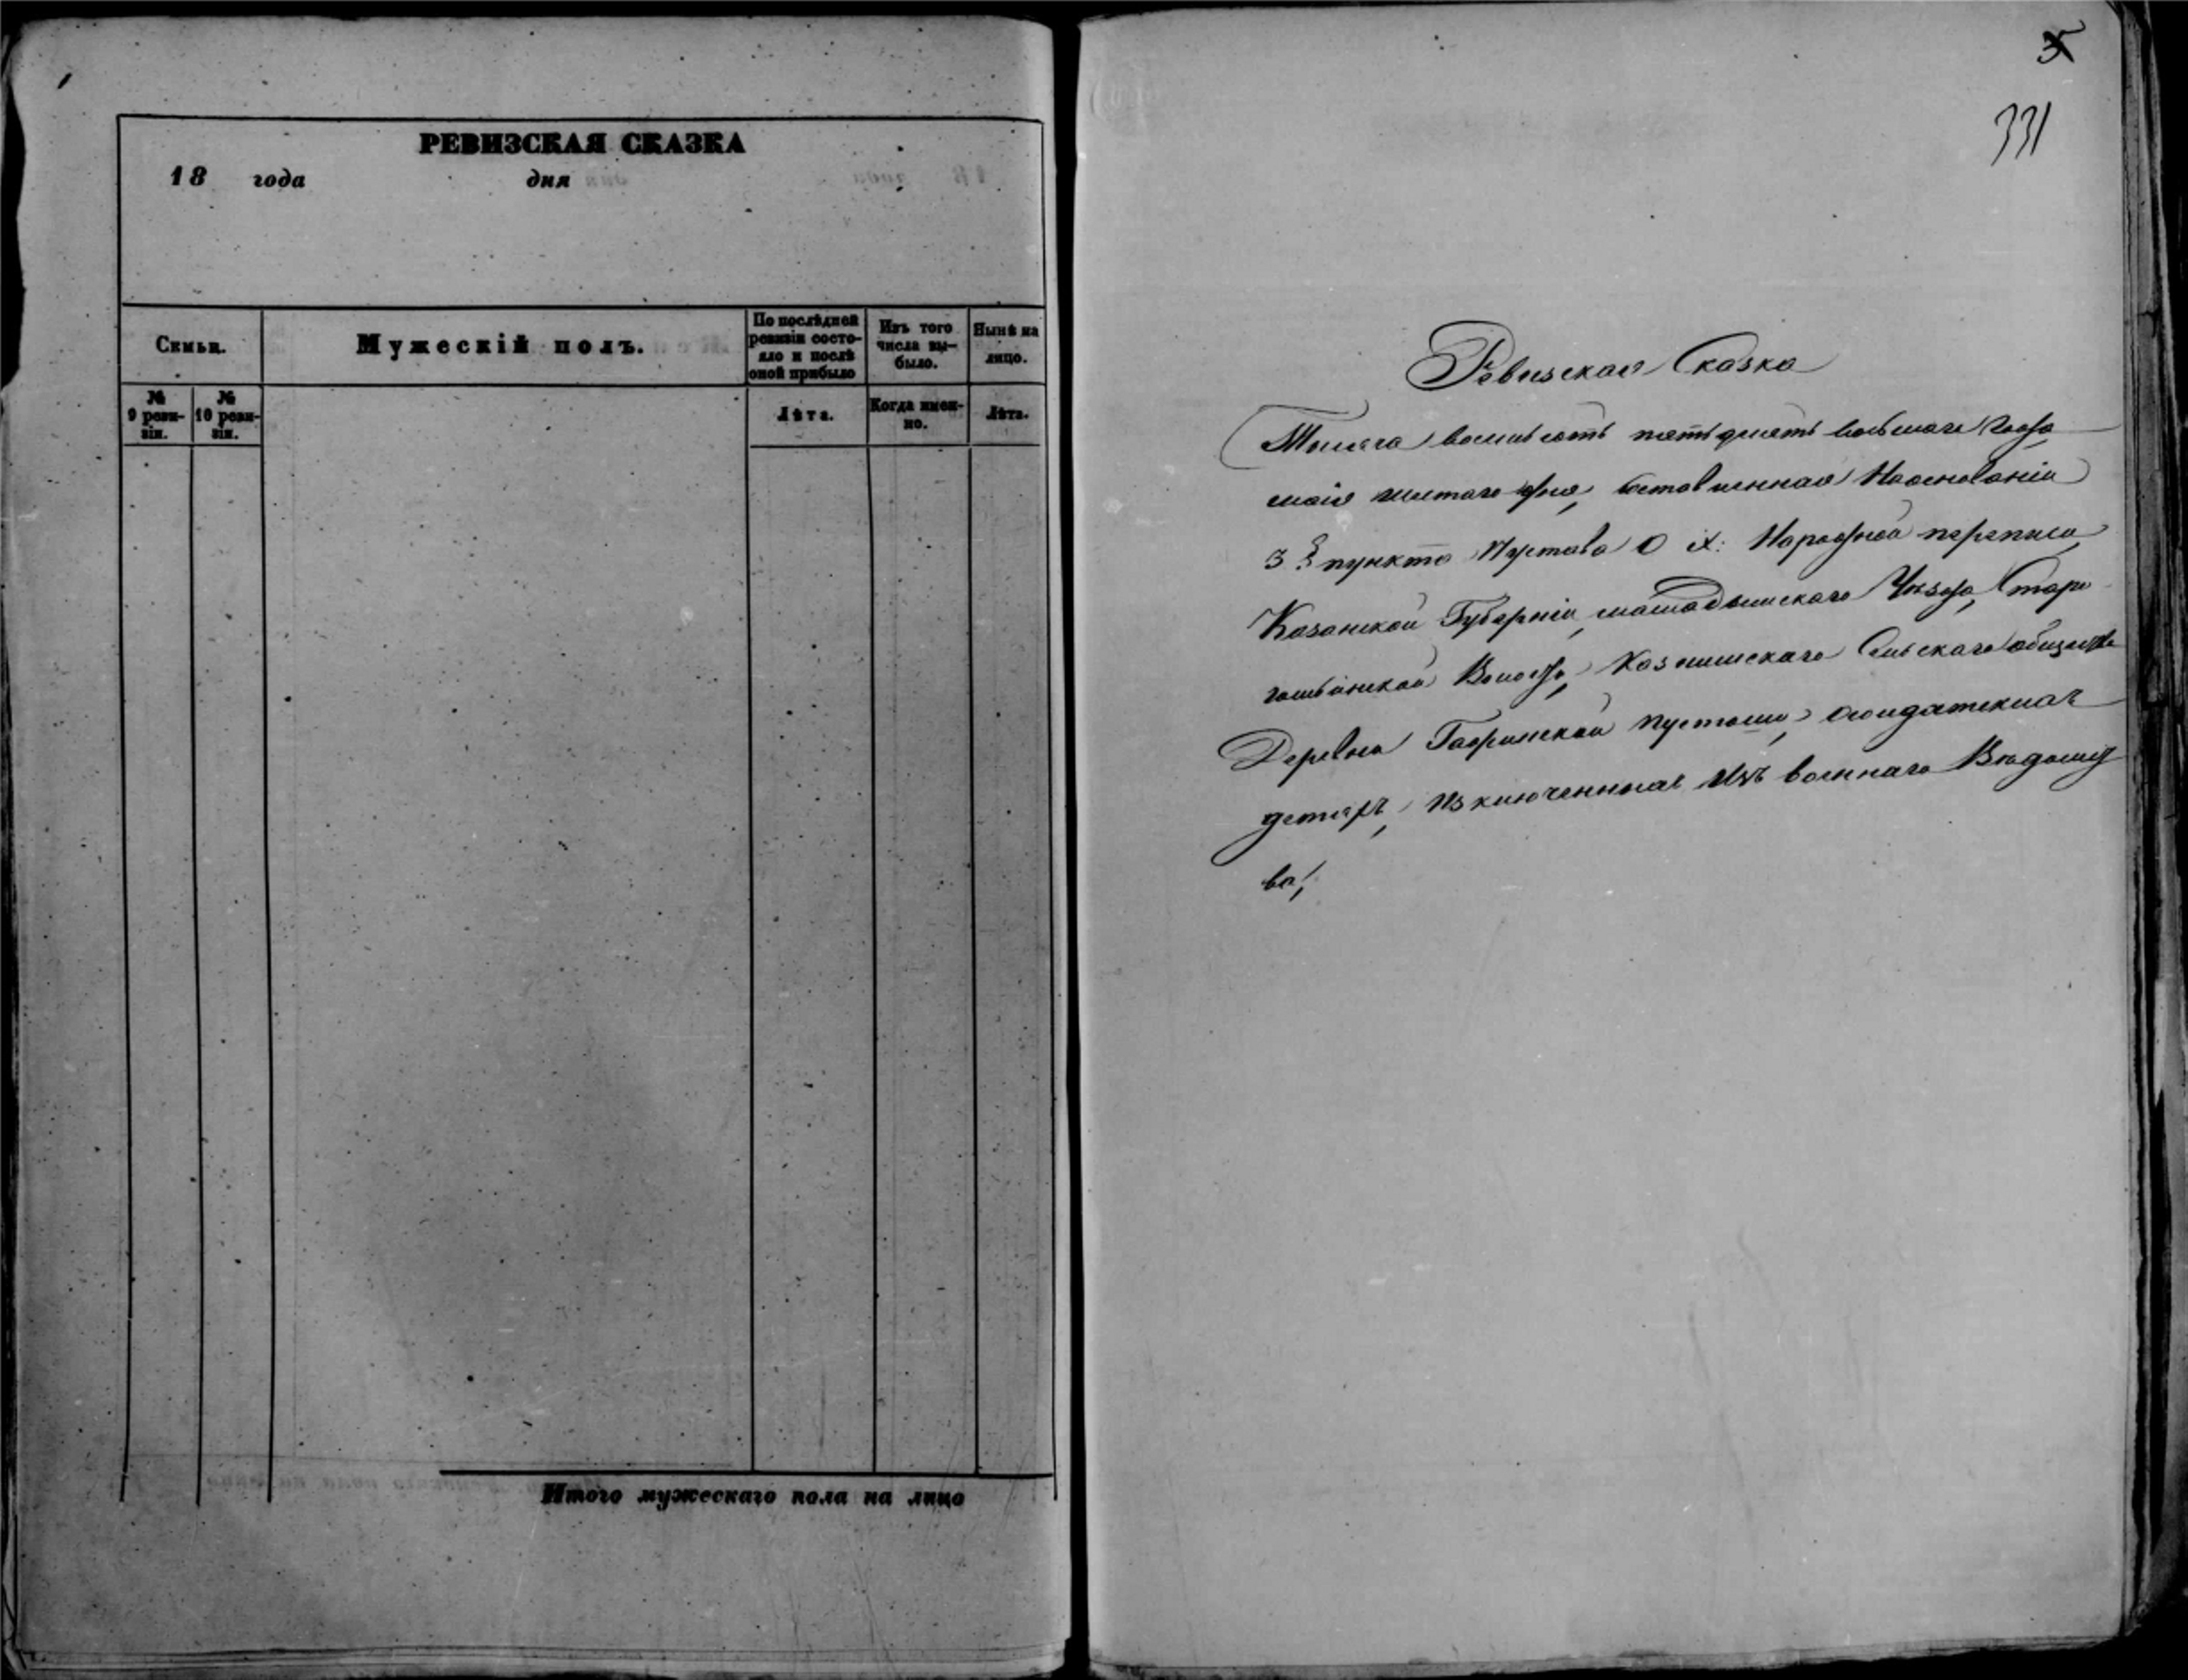 РЕВИЗСКАЯ СКАЗКА
18 года дня
Семьи.
Мужескій полъ.
По послѣдней ревизіи состояло и послѣ оной прибыло
Изъ того числа выбыло.
Нынѣ на лицо.
№ 9 ревизіи.
№ 10 ревизіи.
Лѣта.
Когда именно.
Лѣта.
Итого мужескаго пола на лицо
331
Ревизская Сказка
Тысяча восемьсотъ пятьдесятъ восьмаго года
маія шестаго дня, составленная На основаніи
3 § пункта Устава О Народной переписи
Казанской Губерніи, мамадышскаго Уѣзда, Старо
гощинской Волости, Сельскаго общества
Деревни пустоши, солдатскихъ
детяхъ, изключенныхъ Изъ военнаго Вѣдомст
ва,